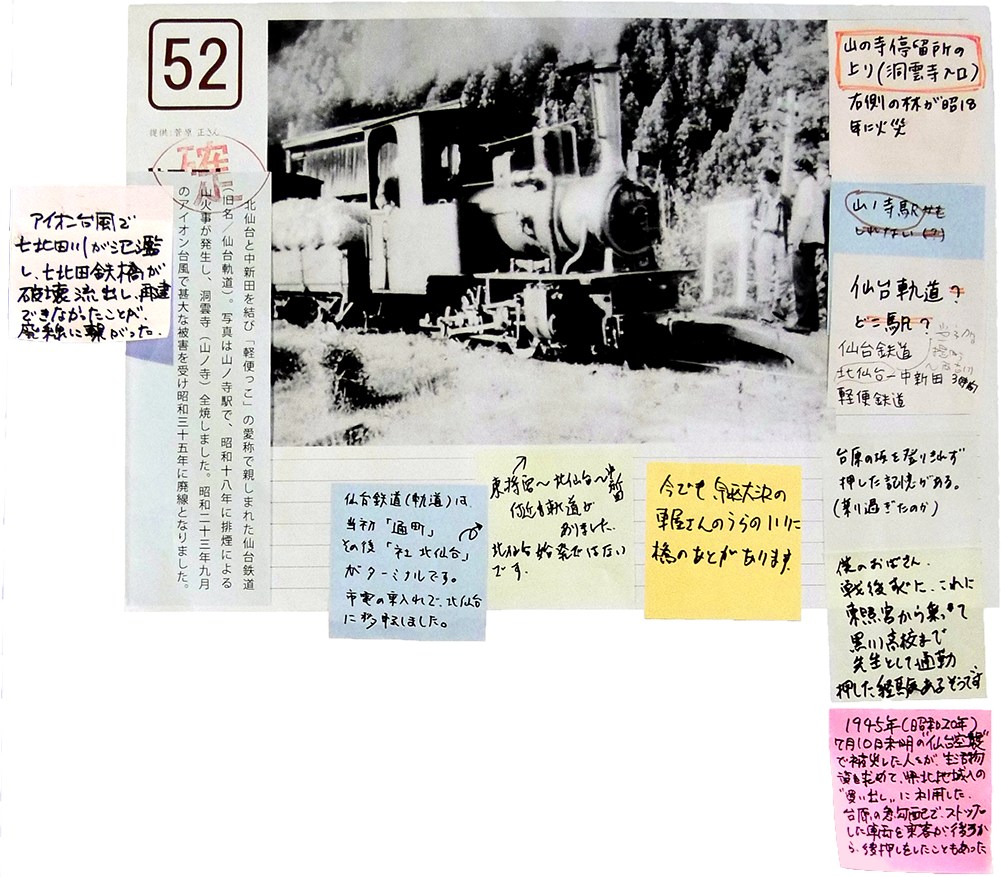 52
提供:菅原 正さん
確
北仙台と中新田を結び「軽便っこ」の愛称で親しまれた仙台鉄道
(旧名/仙台軌道)。写真は山ノ寺駅で、昭和十八年に排煙による
山火事が発生し、洞雲寺(山ノ寺)全焼しました。昭和二十三年九月
のアイオン台風で甚大な被害を受け昭和三十五年に廃線となりました。
アイオン台風で
七北田川が氾濫
し、七北田鉄橋が
破壊流出し、再建
できなかったことが、
廃線に繋がった.
山の寺停留所の
上り(洞雲寺入口)
右側の林が昭18
年に火災
山ノ寺駅かも
しれない(?)
仙台軌道?
どこ駅?
仙台鉄道
北仙台―中新田
軽便鉄道
台原の坂を登りきれず
押した記憶がある。
(乗り過ぎたのか)
僕のおばさん.
戦後すぐに、これに
東照宮から乗って
黒川高校まで
先生として通勤
押した経験あるそうです
1945年(昭和20年)
7月10日未明の"仙台空襲"
で被災した人々が、生活物
資を求めて、県北地域への
"買い出し"に利用した.
台原の急勾配で、ストップ
した車両を乗客が後ろか
ら、後押しをしたこともあった
仙台鉄道(軌道)は、
当初「通町」
その後「社 北仙台」
がターミナルです。
市電の乗入れで、北仙台
に移転しました。
東照宮〜北仙台〜
軌道が
ありました.
北仙台始発ではない
です.
今でも、
車屋さんのうらの川に
橋のあとがあります.